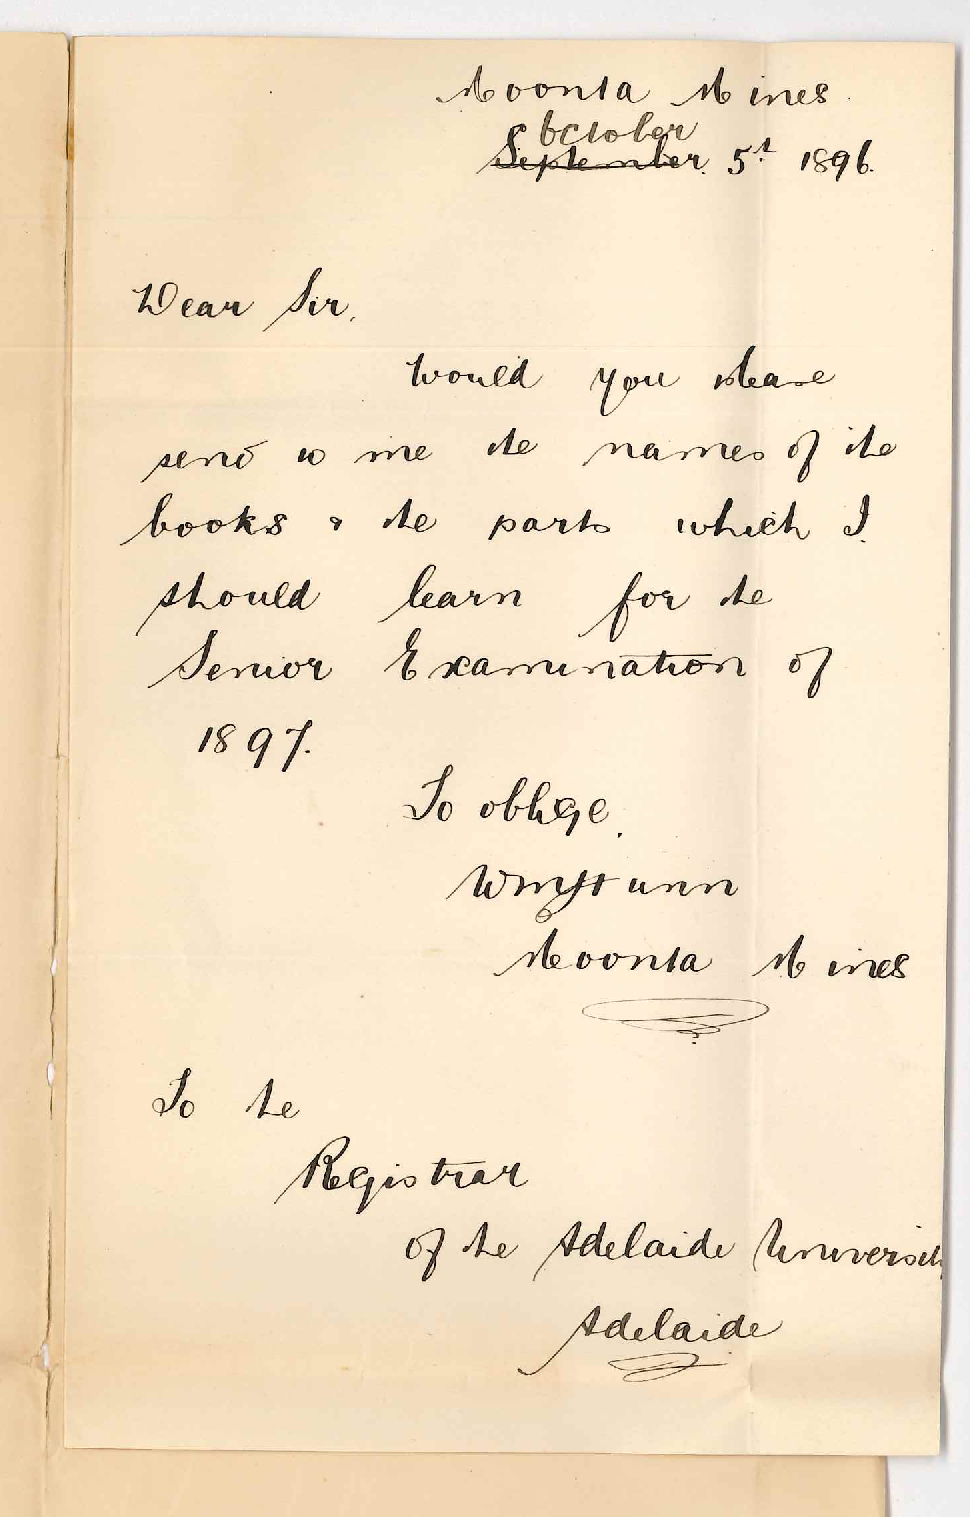 Moonta Mines.
October
September. 5th 1896.
Dear Sir,
Would you please
send to me the names of the
books & the parts which I
should learn for the
Senior Examination of
1897.
To oblige.
Wm Hunn
Moonta Mines
To the
Registrar
of the Adelaide University
Adelaide